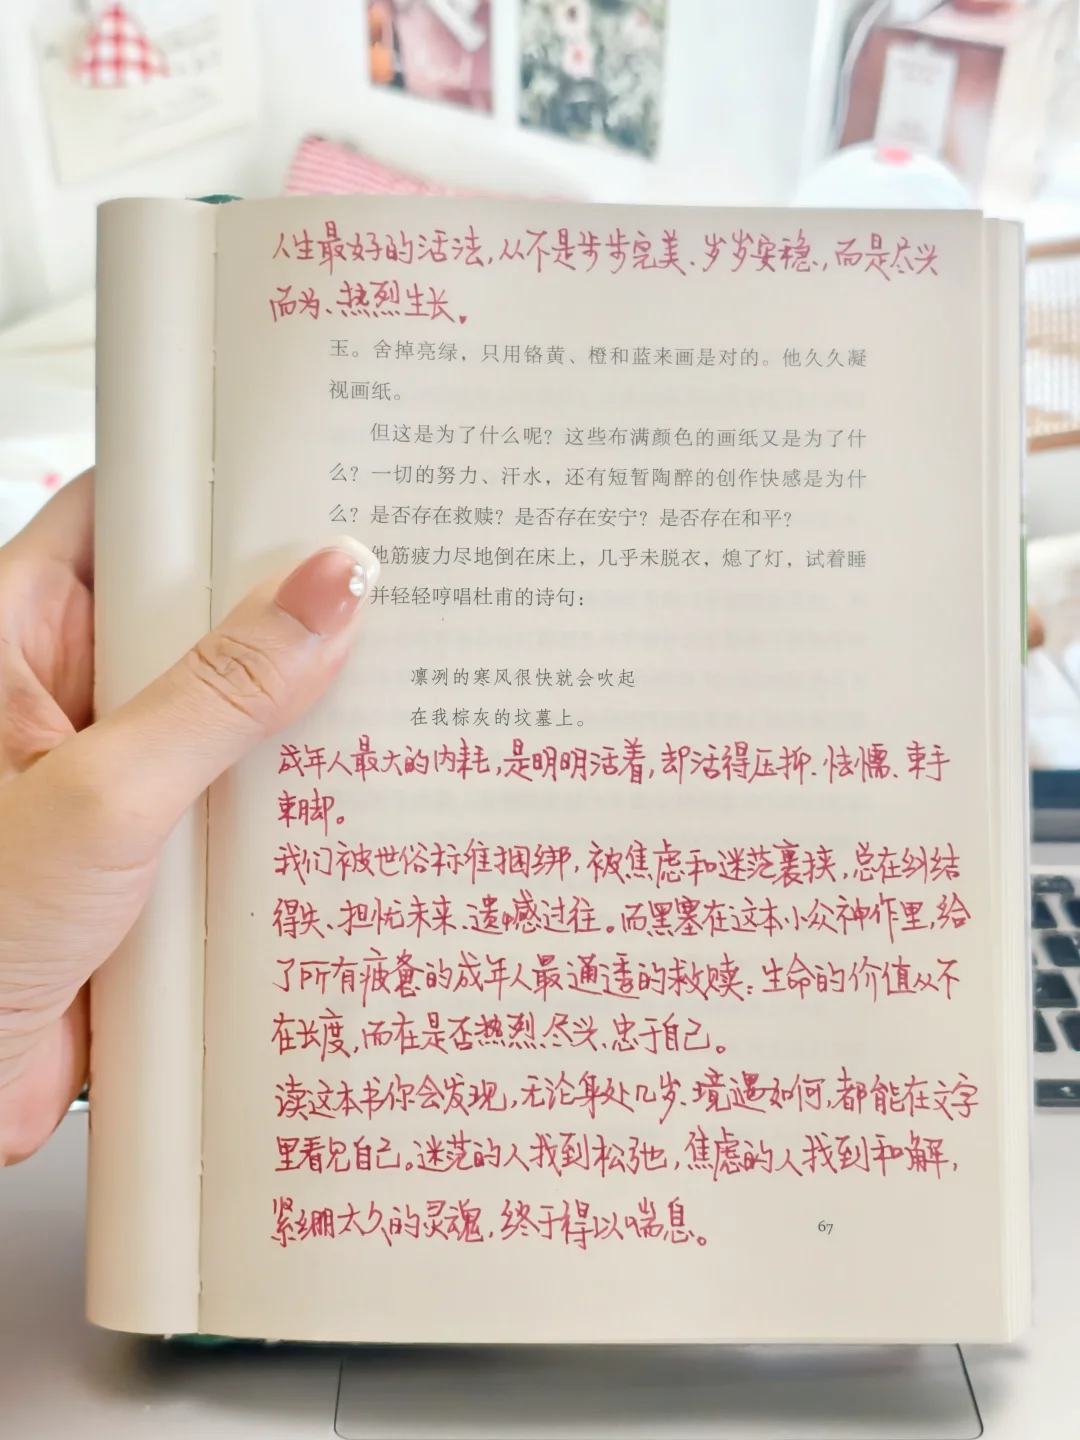 人生最好的活法,从不是步步完美、岁岁安稳,而是尽兴
而为、热烈生长。
玉。舍掉亮绿，只用铬黄、橙和蓝来画是对的。他久久凝
视画纸。
但这是为了什么呢？这些布满颜色的画纸又是为了什
么？一切的努力、汗水，还有短暂陶醉的创作快感是为什
么？是否存在救赎？是否存在安宁？是否存在和平？
他筋疲力尽地倒在床上，几乎未脱衣，熄了灯，试着睡
并轻轻哼唱杜甫的诗句：
凛冽的寒风很快就会吹起
在我棕灰的坟墓上。
成年人最大的内耗,是明明活着,却活得压抑、怯懦、束手
束脚。
我们被世俗标准捆绑,被焦虑和迷茫裹挟,总在纠结
得失、担忧未来、遗憾过往。而黑塞在这本小众神作里,给
了所有疲惫的成年人最通透的救赎:生命的价值从不
在长度,而在是否热烈、尽兴、忠于自己。
读这本书你会发现,无论身处几岁、境遇如何,都能在文字
里看见自己。迷茫的人找到松弛,焦虑的人找到和解,
紧绷太久的灵魂,终于得以喘息。
67